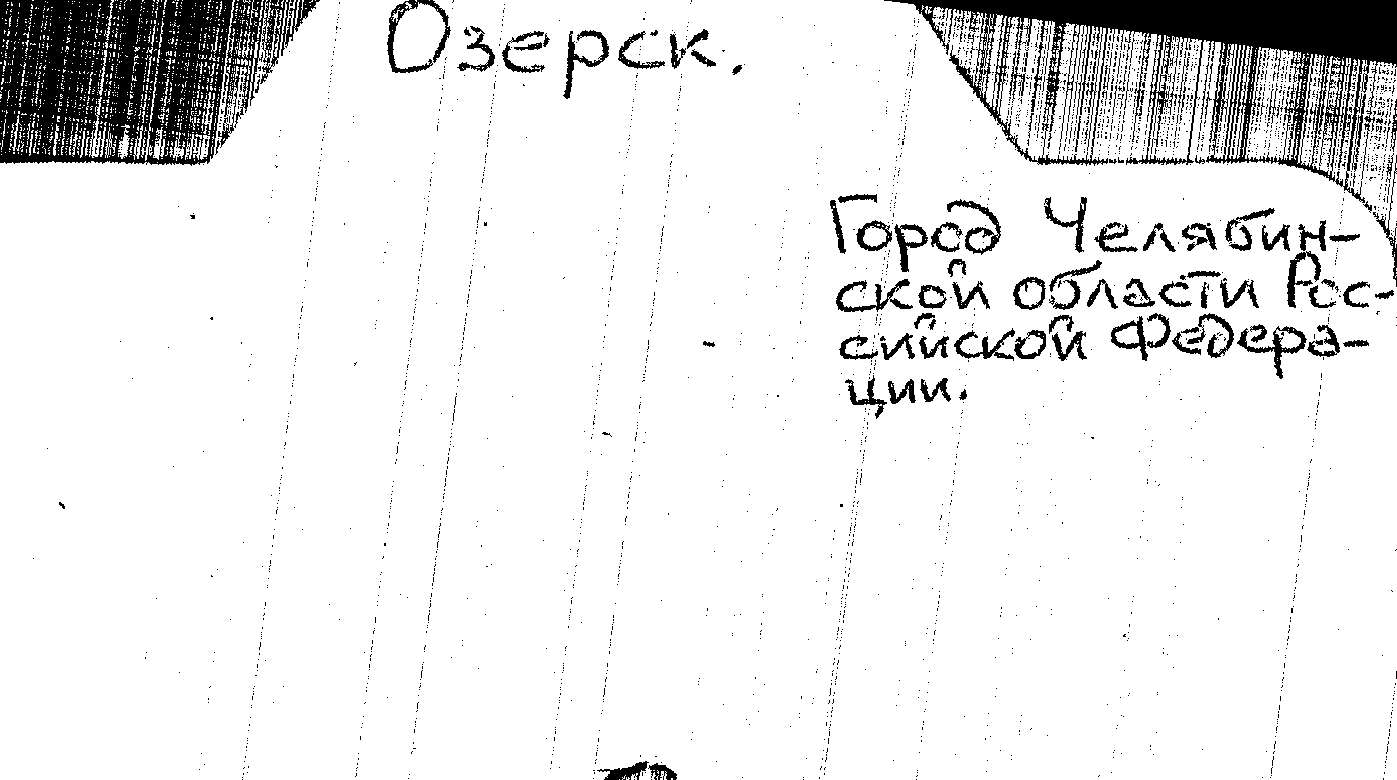 Озерск.
Город Челябин-
ской области Рос-
сийской Федера-
ции.